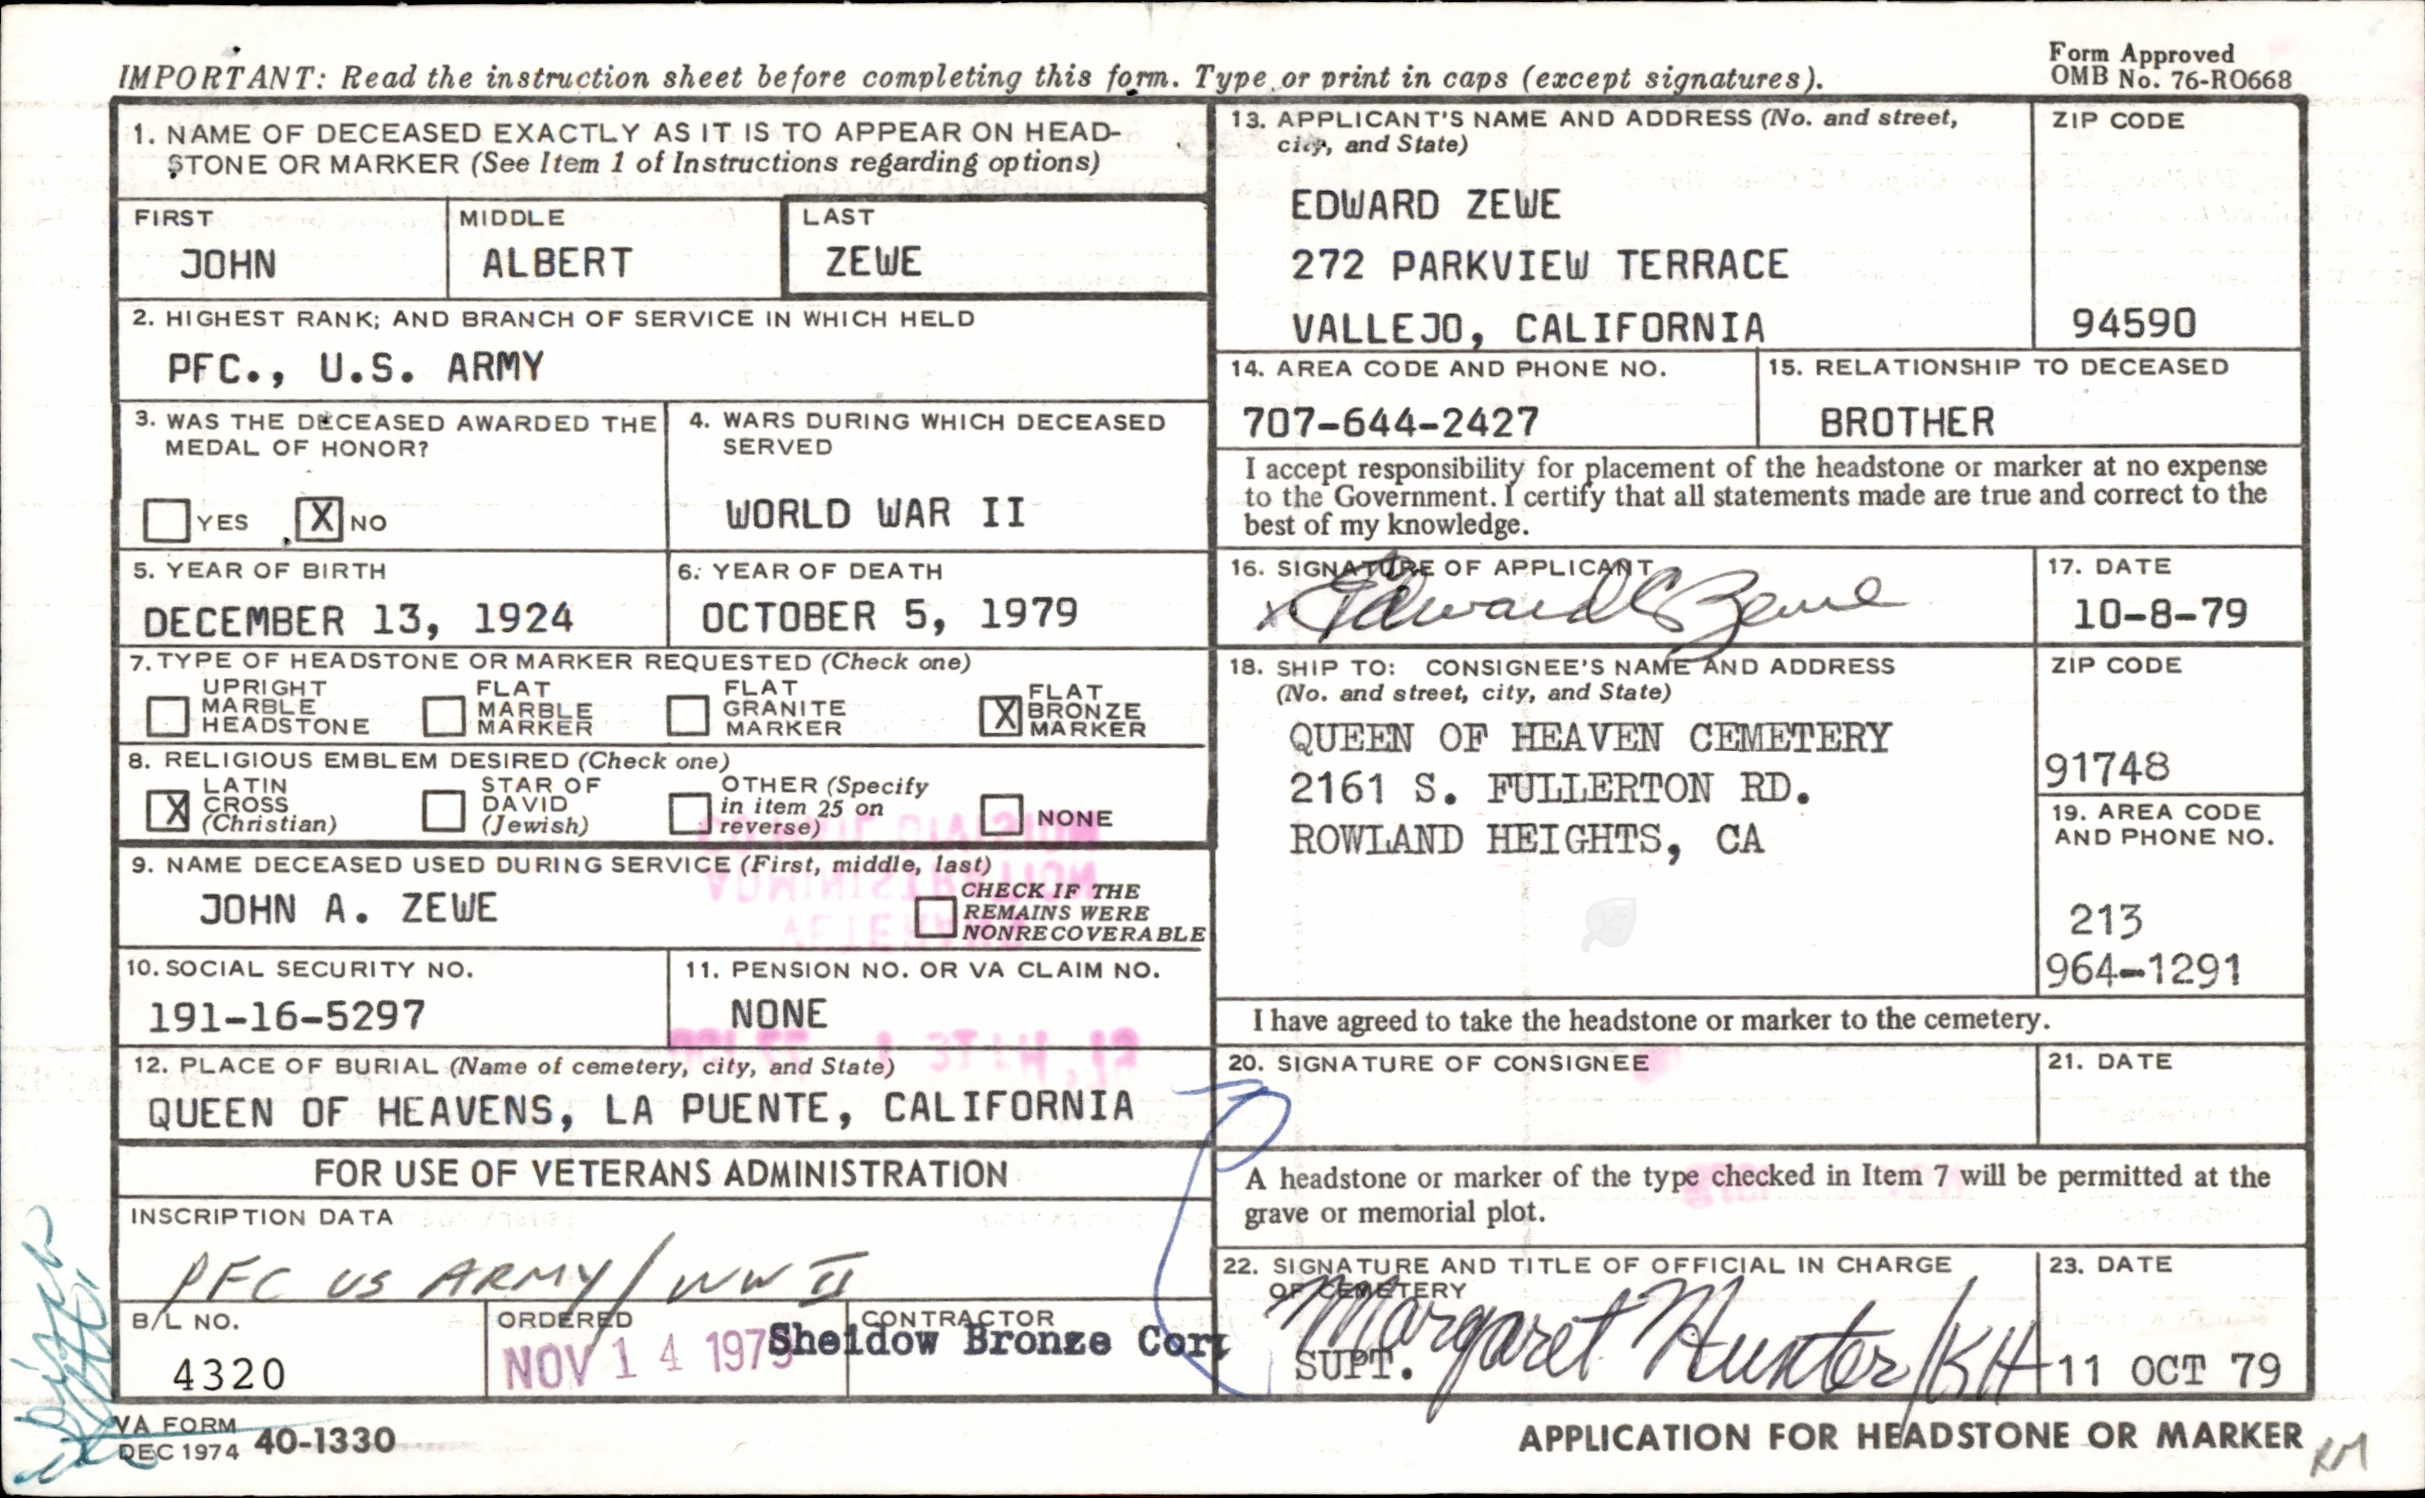 IMPORTANT: Read the instruction sheet before completing this form. Type or print in caps (except signatures).
Form Approved
OMB No. 76-RO668
1. NAME OF DECEASED EXACTLY AS IT IS TO APPEAR ON HEAD-
STONE OR MARKER (See Item 1 of Instructions regarding options)
FIRST MIDDLE LAST
JOHN ALBERT ZEWE
2. HIGHEST RANK; AND BRANCH OF SERVICE IN WHICH HELD
PFC., U.S. ARMY
3. WAS THE DECEASED AWARDED THE
MEDAL OF HONOR?
YES X NO
4. WARS DURING WHICH DECEASED
SERVED
WORLD WAR II
5. YEAR OF BIRTH
DECEMBER 13, 1924
6. YEAR OF DEATH
OCTOBER 5, 1979
7. TYPE OF HEADSTONE OR MARKER REQUESTED (Check one)
UPRIGHT
MARBLE
HEADSTONE
FLAT
MARBLE
MARKER
FLAT
GRANITE
MARKER
X FLAT
BRONZE
MARKER
8. RELIGIOUS EMBLEM DESIRED (Check one)
X LATIN
CROSS
(Christian)
STAR OF
DAVID
(Jewish)
OTHER (Specify
in item 25 on
reverse)
NONE
9. NAME DECEASED USED DURING SERVICE (First, middle, last)
JOHN A. ZEWE
CHECK IF THE
REMAINS WERE
NONRECOVERABLE
10. SOCIAL SECURITY NO.
191-16-5297
11. PENSION NO. OR VA CLAIM NO.
NONE
12. PLACE OF BURIAL (Name of cemetery, city, and State)
QUEEN OF HEAVENS, LA PUENTE, CALIFORNIA
FOR USE OF VETERANS ADMINISTRATION
INSCRIPTION DATA
PFC US ARMY / WW II
B/L NO.
4320
ORDERED
NOV 14 1979
CONTRACTOR
Sheidow Bronze Corp
VA FORM
DEC 1974 40-1330
13. APPLICANT'S NAME AND ADDRESS (No. and street,
city, and State)
EDWARD ZEWE
272 PARKVIEW TERRACE
VALLEJO, CALIFORNIA
ZIP CODE
94590
14. AREA CODE AND PHONE NO.
707-644-2427
15. RELATIONSHIP TO DECEASED
BROTHER
I accept responsibility for placement of the headstone or marker at no expense
to the Government. I certify that all statements made are true and correct to the
best of my knowledge.
16. SIGNATURE OF APPLICANT
x Edward C Zewe
17. DATE
10-8-79
18. SHIP TO: CONSIGNEE'S NAME AND ADDRESS
(No. and street, city, and State)
QUEEN OF HEAVEN CEMETERY
2161 S. FULLERTON RD.
ROWLAND HEIGHTS, CA
ZIP CODE
91748
19. AREA CODE
AND PHONE NO.
213
964-1291
I have agreed to take the headstone or marker to the cemetery.
20. SIGNATURE OF CONSIGNEE
21. DATE
A headstone or marker of the type checked in Item 7 will be permitted at the
grave or memorial plot.
22. SIGNATURE AND TITLE OF OFFICIAL IN CHARGE
OF CEMETERY
Margaret Hunter/KH
SUPT.
23. DATE
11 OCT 79
APPLICATION FOR HEADSTONE OR MARKER
RM